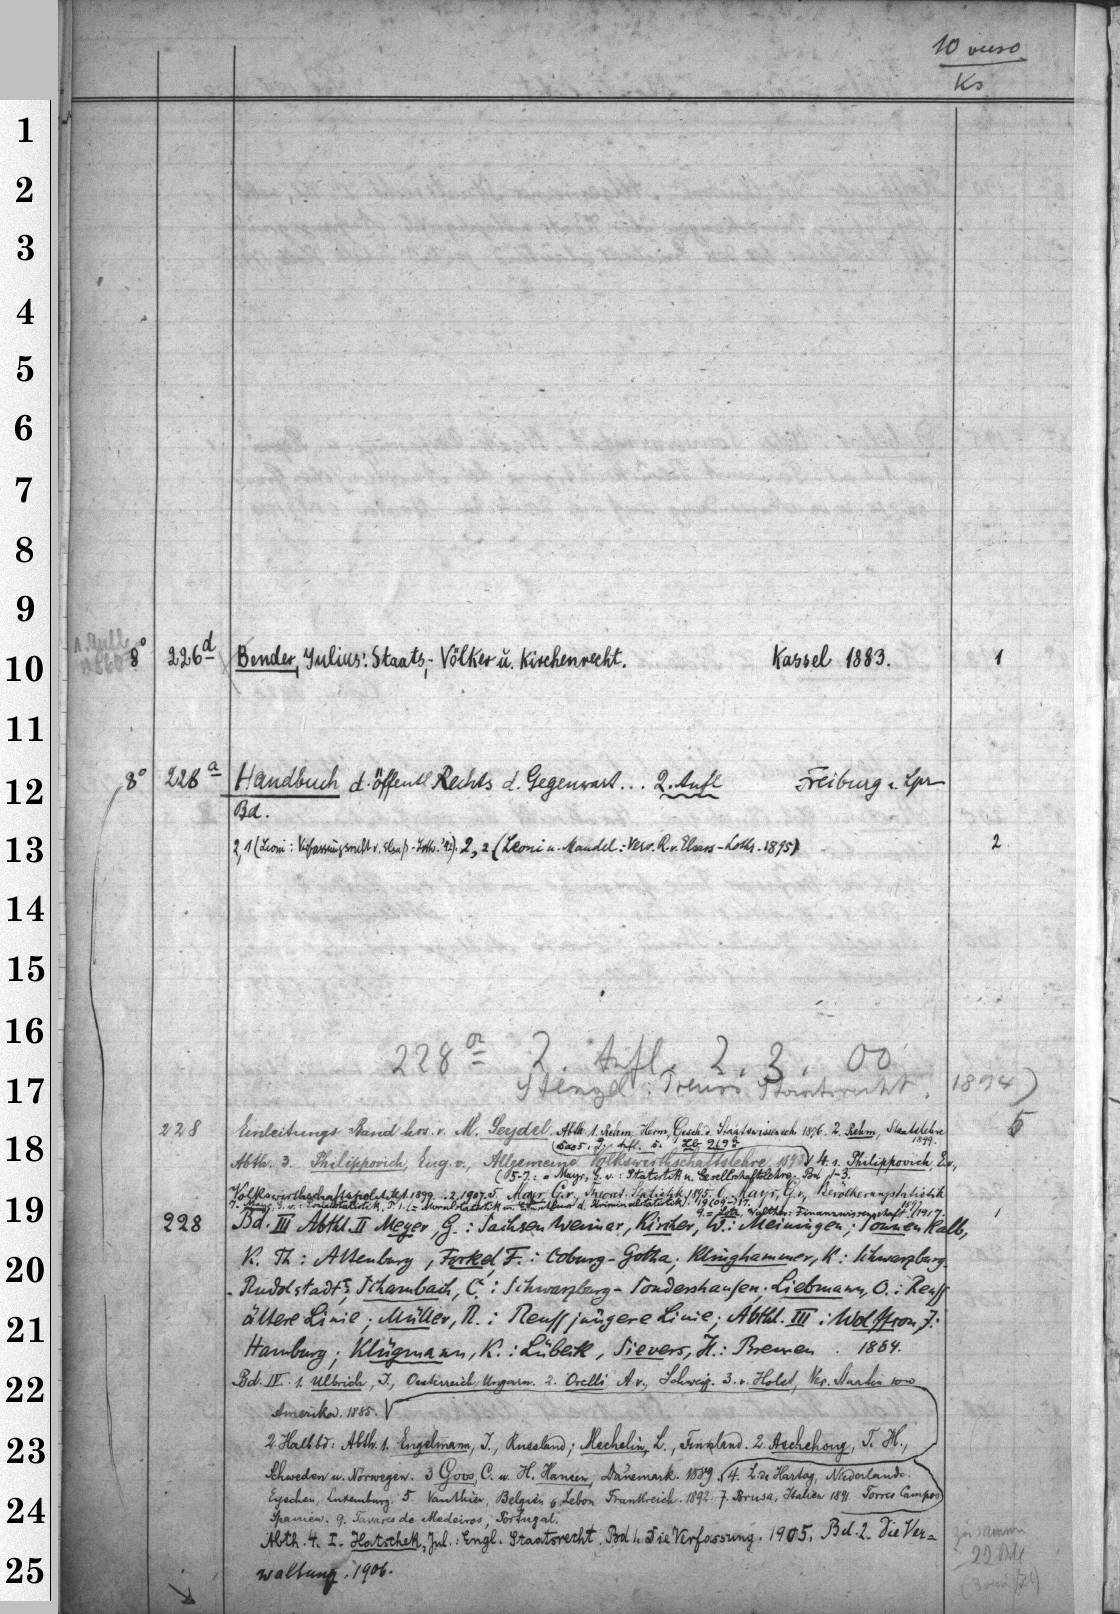 10 verso
Ks
1
2
3
4
5
6
7
8
9
10
8° 226d Bender, Julius: Staats-, Völker u. Kirchenrecht. Kassel 1883. 1
11
12
8° 228a Handbuch d. öffentl Rechts d. Gegenwart... 2. Aufl Freiburg u. Lpz
Bd.
13
2,1 (Leoni: Verfassungsrecht v. Elsaß-Loth. '92). 2,2 (Leoni u. Mandel: Verw. R. v. Elsass-Loth. 1895) 2
14
15
16
228a 2. Aufl. 2. 3. 00
17
Stenzel: Preuss. Staatsrecht. 1894)
228 Einleitungs Band hrs. v. M. Seydel. Abth. 1. Rehm, Herm, Gesch. d. Staatswissensch 1896. 2. Rehm, Staatslehre 1899. 5
18
Abth. 3. Philippovich, Eug. v., Allgemeine Volkswirthschaftslehre. 1893 4. 1. Philippovich, E. v.,
19
Volkswirthschaftspolitik 1. 1899. 2, 1907. 5. Mayr, G. v., Theoret. Statistik 1895. 6. Mayr, G. v., Bevölkerungsstatistik 1897
228 Bd. III Abthl. II Meyer, G.: Sachsen Weimar, Kircher, W.: Meiningen; Sonnenkalb, 1
20
K. Th: Altenburg, Forkel F.: Coburg-Gotha; Klinghammer, K: Schwarzburg-
Rudolstadt; Schambach, C.: Schwarzburg-Sondershausen; Liebmann, O.: Reuss
21
ältere Linie; Müller, R.: Reuss jüngere Linie; Abthl. III: Wolffson, J:
Hamburg; Klügmann, K.: Lübeck, Sievers, H.: Bremen. 1884.
22
Bd. IV. 1. Ulbrich, J., Oesterreich Ungarn. 2. Orelli A v., Schweiz. 3. v. Holst, Ver. Staaten von
Amerika. 1885.
23
2 Halbbd: Abth. 1. Engelmann, J., Russland; Mechelin, L., Finnland. 2. Aschehoug, T. H.,
Schweden u. Norwegen. 3 Goos, C. u. H. Hansen, Dänemark. 1889. 4. L. de Hartog, Niederlande.
24
Eyschen, Luxemburg. 5 Vauthier, Belgien 6 Lebon Frankreich. 1892. 7. Brusa, Italien 1891 Torres Campos
Spanien. 9. Tavares de Medeiros, Portugal.
Abth. 4. I. Hatschek, Jul.: Engl. Staatsrecht. Bd 1. Die Verfassung. 1905. Bd. 2. Die Ver=
25
waltung. 1906.
zusammen
22 Bde